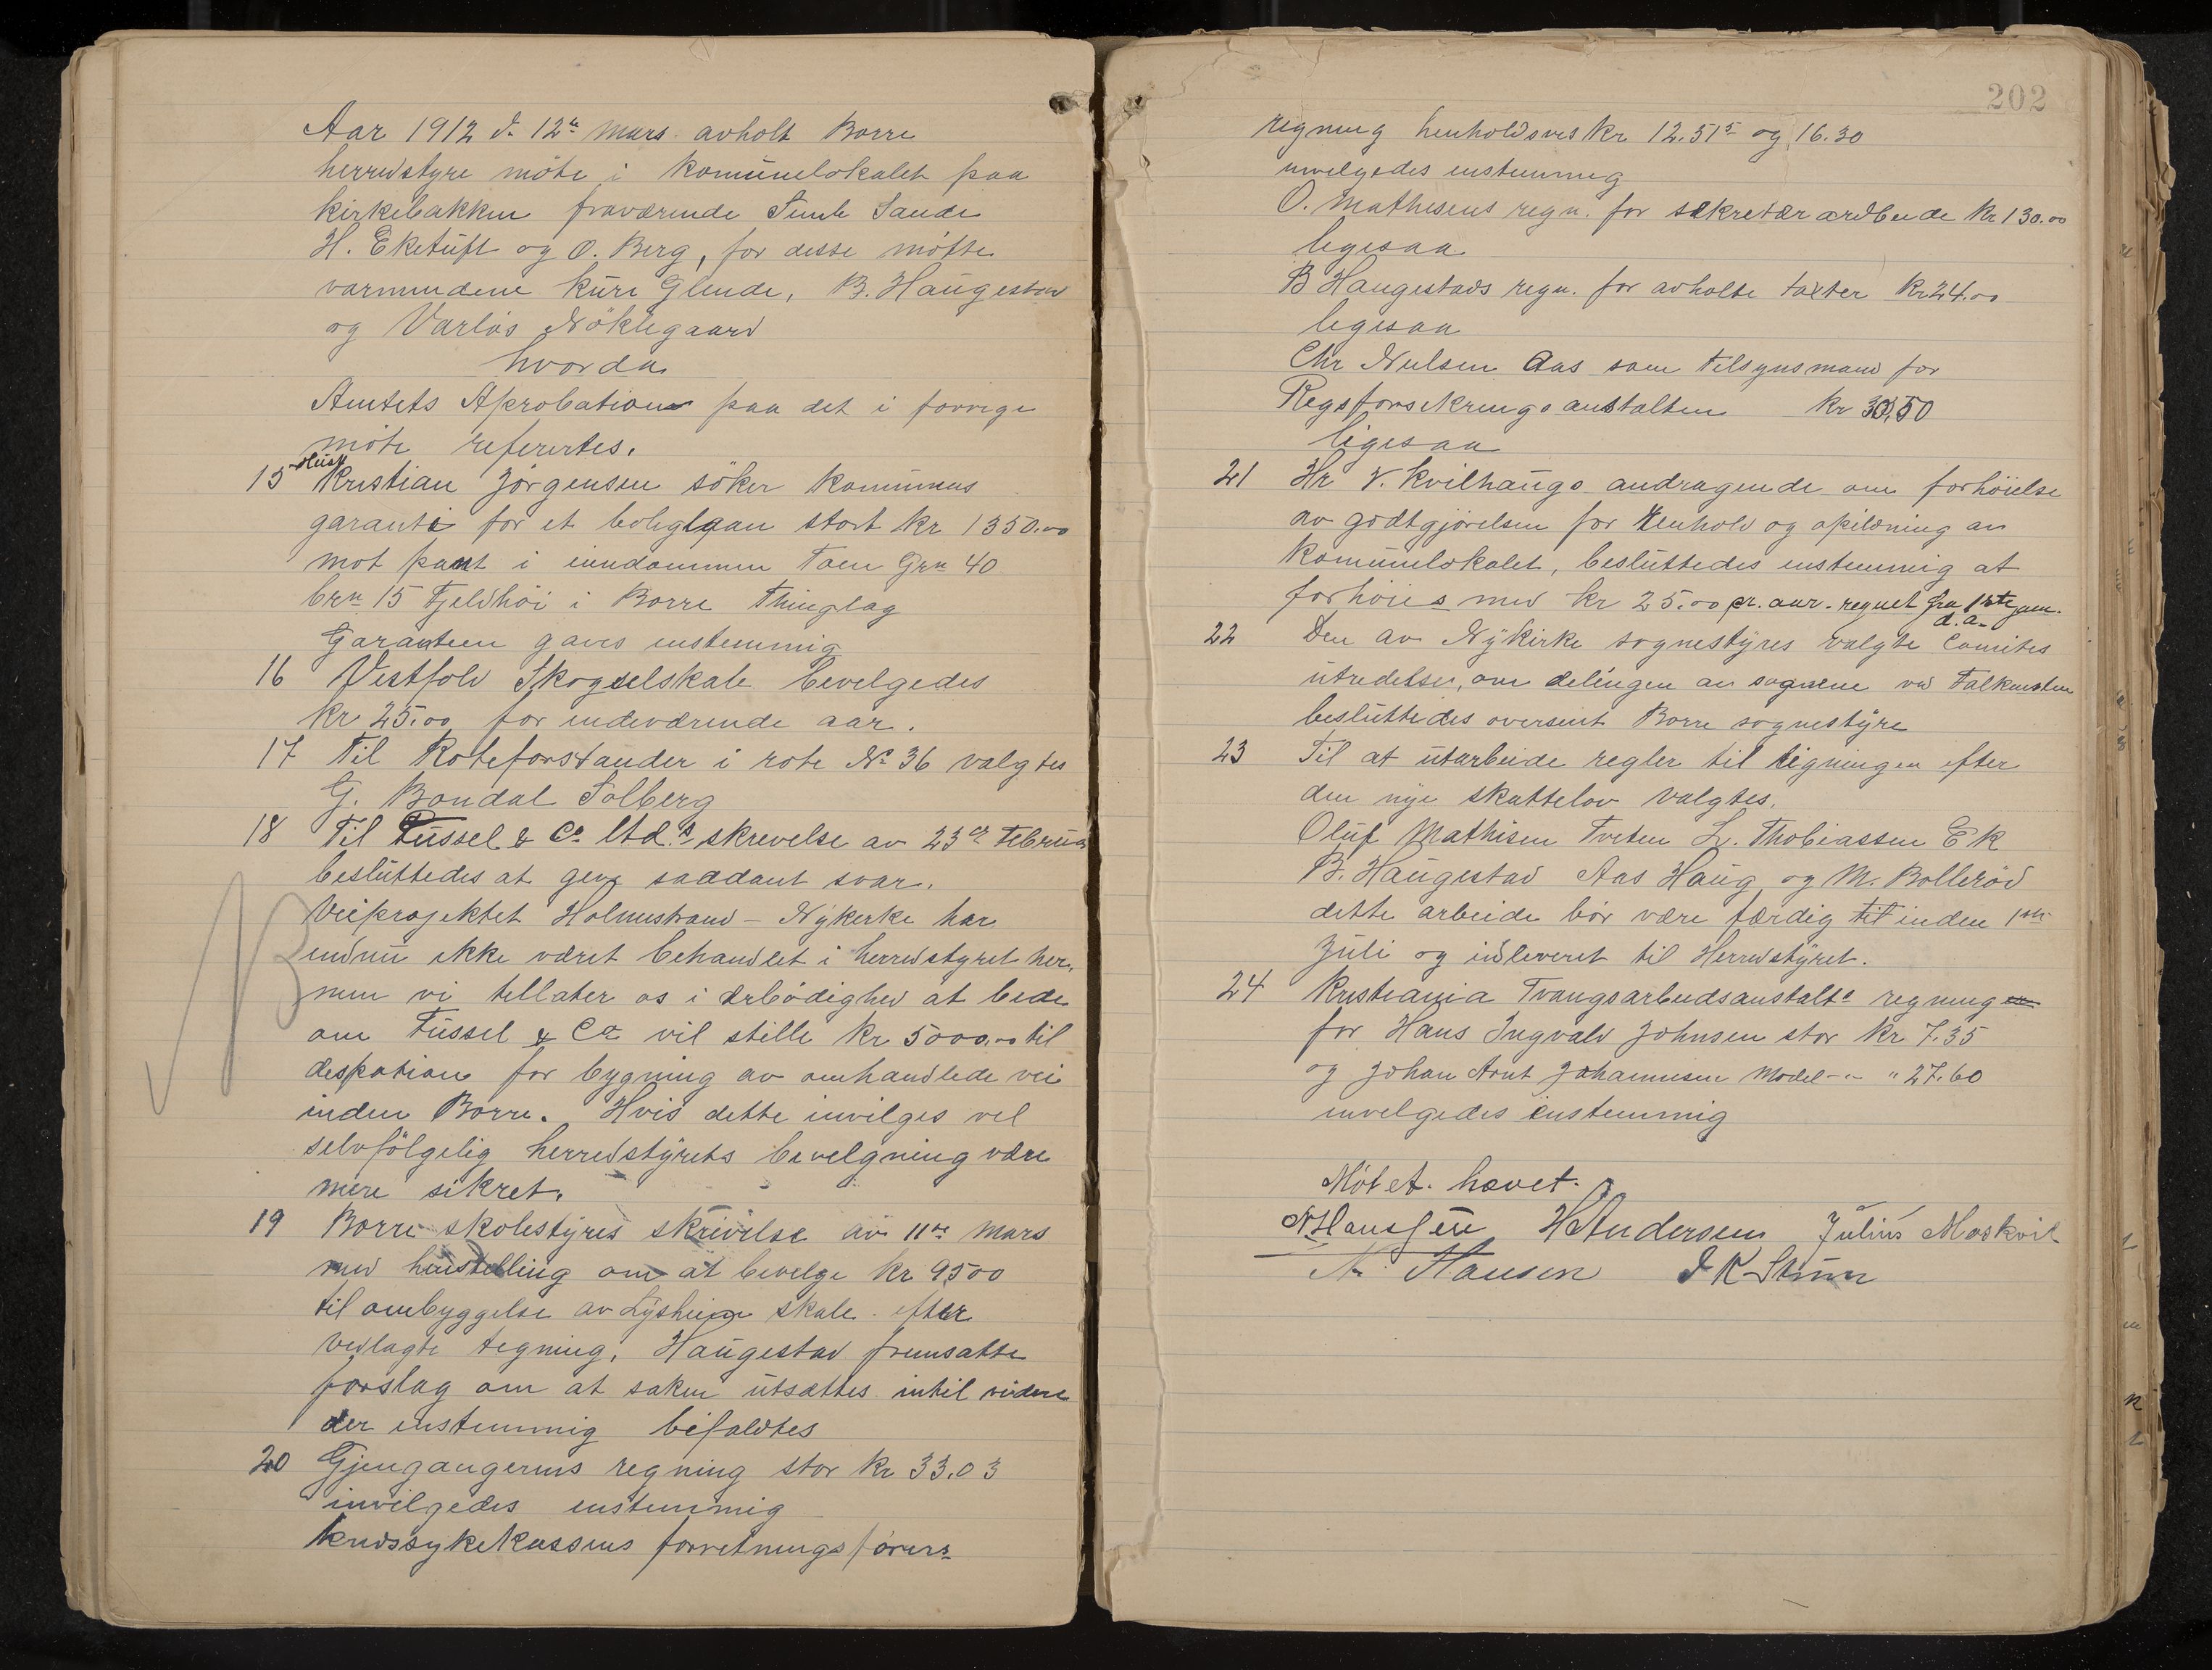 Aar 1912 d. 12te Mars avholt Borre
herredstyre möte i komünelokalet paa
kirkebakken fraværende Sande
H. Eketüft og O. Berg, for desse mötte
varmendene Küre Glende, B. Haügestad
og Varlös Nöklegaard
hvorda
Amtets Aprobation paa det i forrige
möte referertes.
15 Kristian Jörgensen söker komünens
garanti for et boliglaan stort kr 1350.00
mot pant i eiendommen Toen Grn 40
brn 15 Fjeldhöi i Borre Thinglag
Garantien gaves enstemmig
16 Vestfold Skogselskab bevelgedes
kr 25.00 for indeværende aar.
17 Til Roteforstander i rote No 36 valgtes
G. Bondal Solberg
18 Til Füssel & Co Ltd.s skrevelse av 23de Februar
beslüttedes at give saadant svar.
Veiprojektet Holmestrand – Nykerke har
endnü ikke været behandlet i herredstyret her,
men vi tellater os i ærbödighed at bede
om Füssel & Co vil stille kr 5000.00 til
desposition for bygning av omhandlede vei
inden Borre. Hvis dette invilges vel
selvfölgelig herredstyrets bevelgning være
mere sikret.
19 Borre skolestyres skrivelse av 11te Mars
med henstelling om at bevelge kr 9500
til ombyggelse av Lysheim skole efter
vedlagte tegning. Haügestad fremsatte
forslag om at saken ütsættes intil videre
der enstemmig bifaldtes
20 Gjengangerens regning stor kr 33.03
invilgedes enstemmig
kredssykekassens forretningsförers
202
regning henholdsves kr 12.515 og 16.30
invelgedes enstemmig
O. Mathesens regn. for sekretær ardbeide kr 130.00
legesaa
B Haugestads regn. for avholte taxter kr 24.00
legesaa
Chr Nielsen Aas som Tilsynsmand for
Regsforsikrings anstalten kr 30,50
legesaa
21 Hr V. Kvilhaugs andragende om forhöielse
av godtgjörelsen for renhold og opildning av
komünelokalet, beslüttedes enstemmig at
forhöies med kr 25.00 pr. aar. regnet fra 1ste jan.
d.a.
22 Den av Nykirke sognestyres valgte Comites
ütredelse, om delingen av sognene ved Falkensten
beslüttedes oversent Borre sognestyre
23 Til at ütarbeide regler til ligningen efter
den nye skattelov valgtes.
Olüf Mathisen Tveten L. Thobiassen Ek
B. Haügestad Aas Haüg og M. Bolleröd
dette arbeide bör være færdig til inden 1ste
Jüli og idleveret til Herredstyret.
24 Kristiania Tvangsarbeidsanstalts regning
for Hans Ingvald Johnsen stor kr 7.35
og Johan Arnt Johannesen Model -"- " 27.60
invelgedes enstemmig
Mötet hævet.
N. Hanssen H Andersen Julius Moskvil
N. Hansen